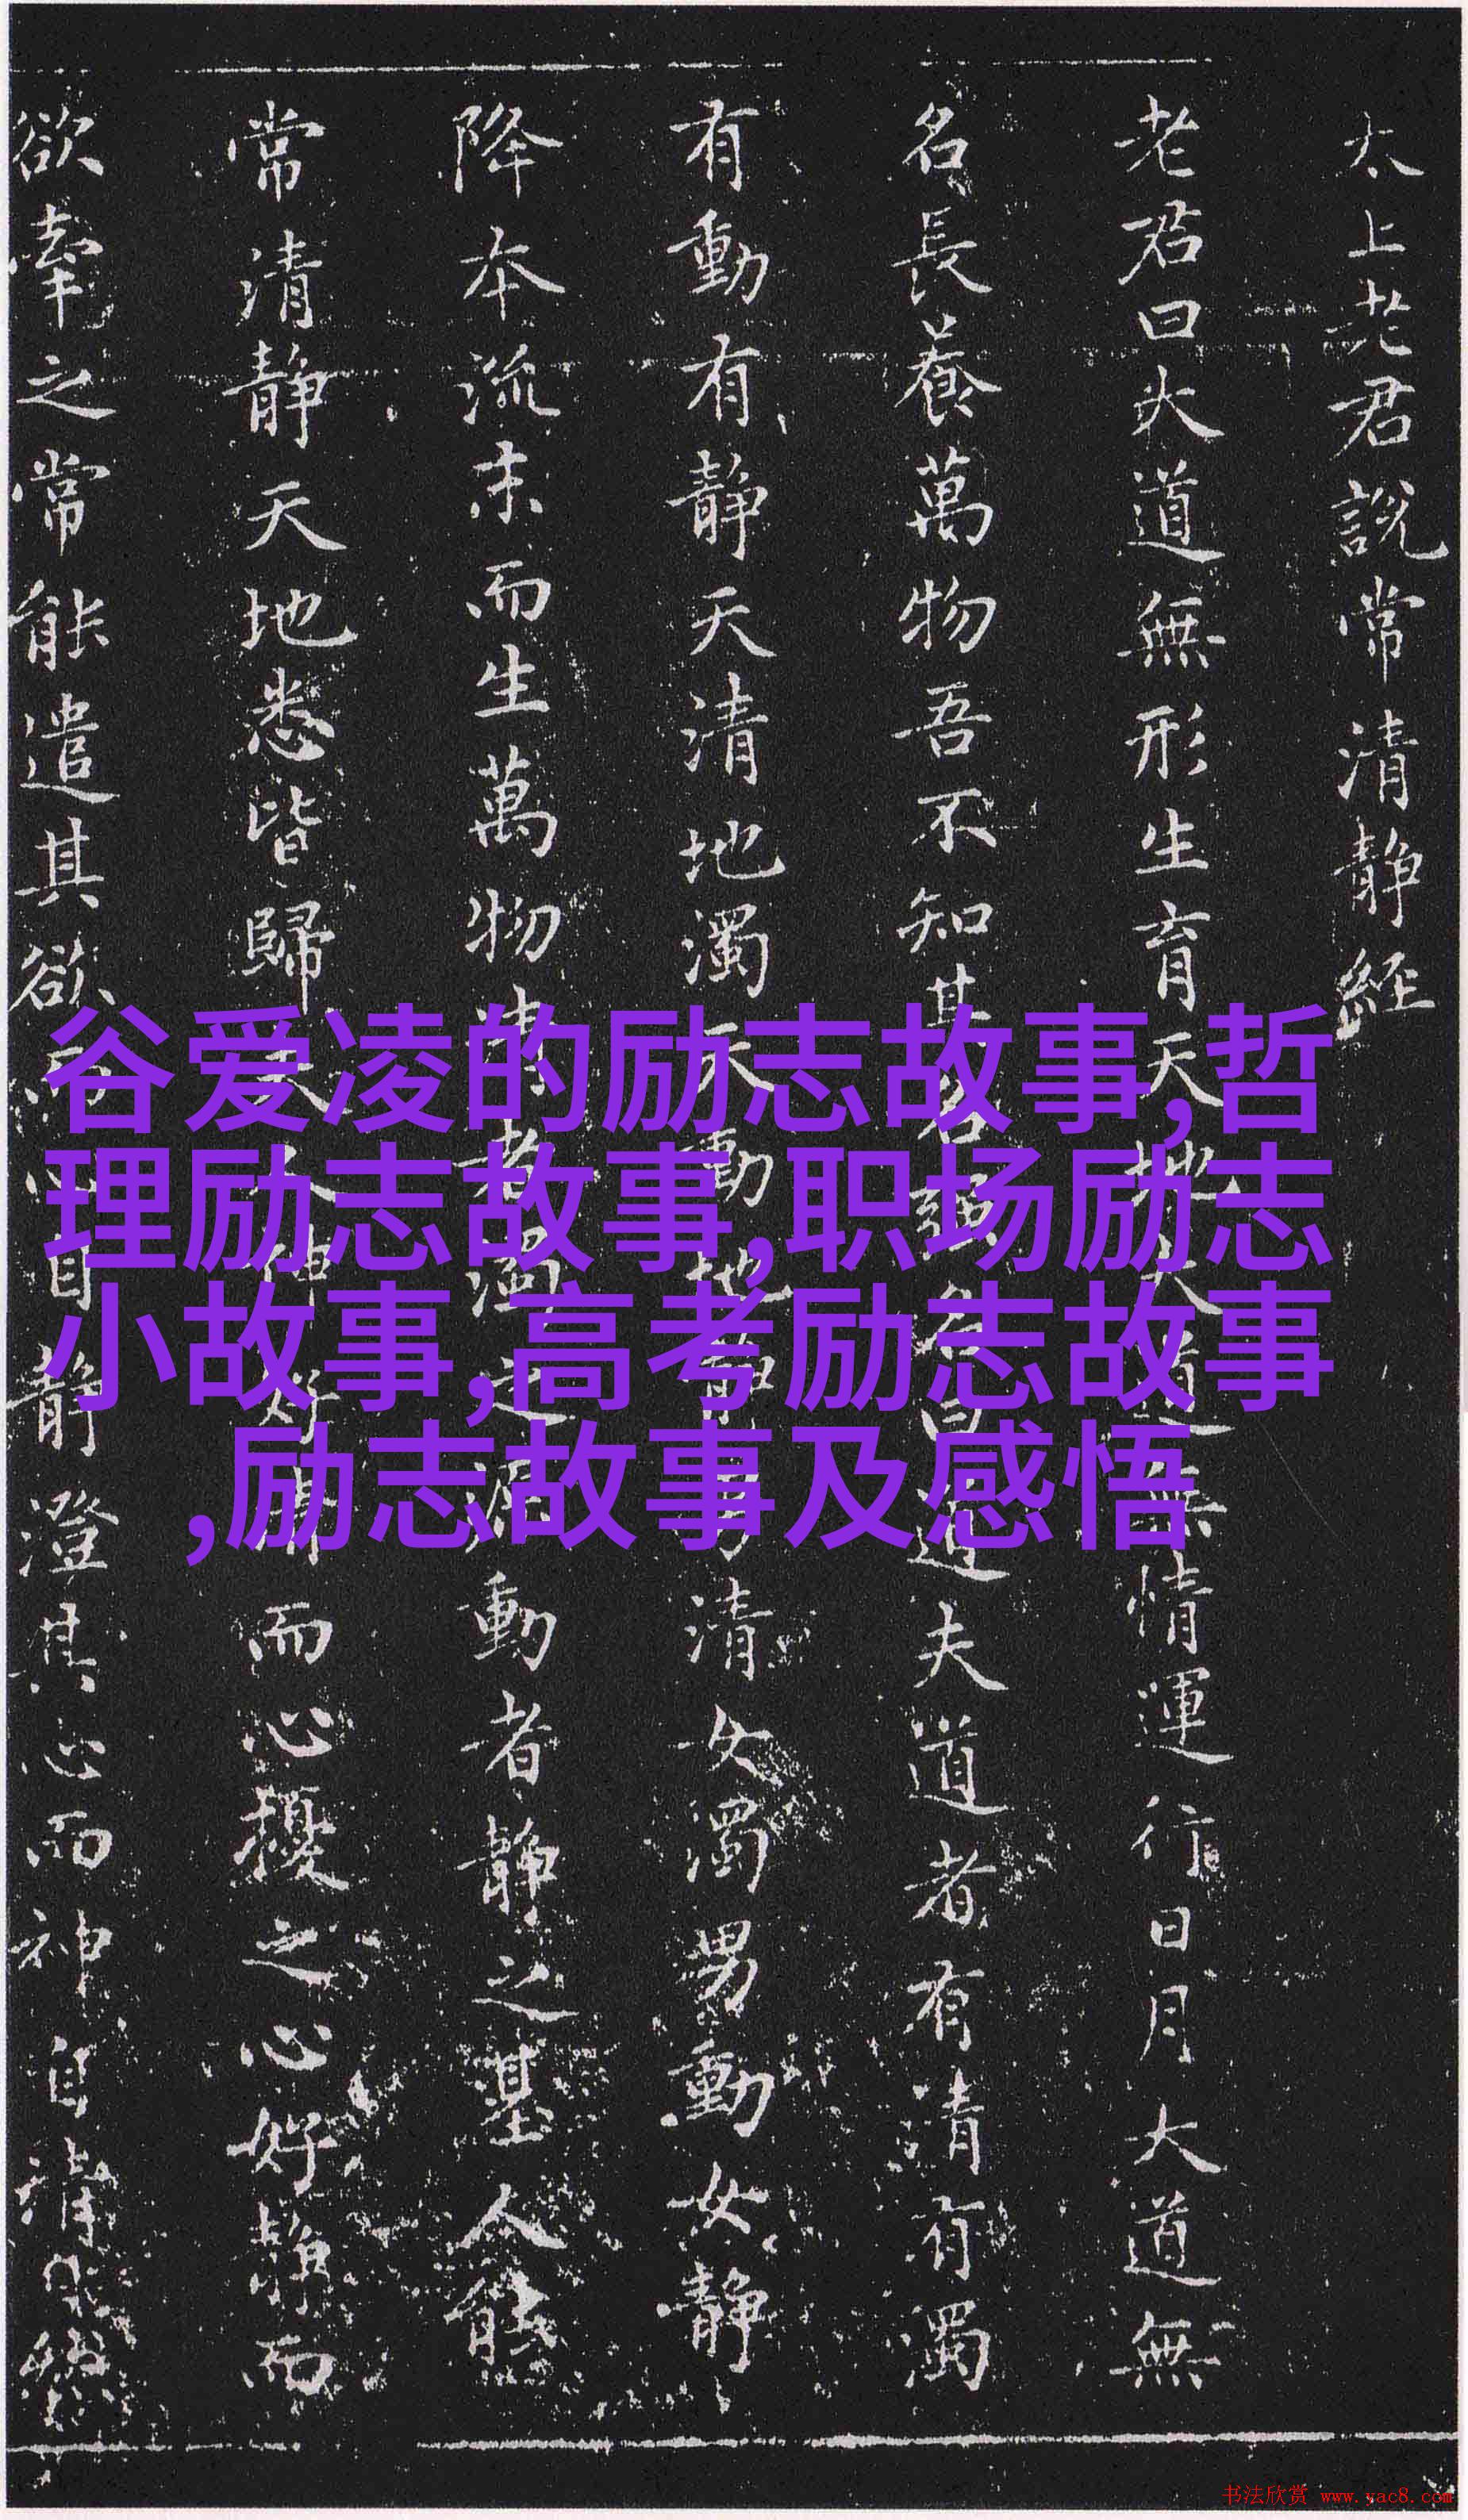 太上老君說常清靜經
老君曰大道無形生育天地大道無情運行日月大道無
名長養萬物吾不知其名強名曰道夫道者有清有濁
有動有靜天清地濁天動地靜男清女濁男動女靜
降本流末而生萬物清者濁之源動者靜之基人能
常清靜天地悉皆歸夫人神好清而心擾之心好靜而
欲牽之常能遣其欲而心自靜澄其心而神自清自然
谷爱凌的励志故事,哲
理励志故事,职场励志
小故事,高考励志故事
,励志故事及感悟
书法欣赏 www.yac8.com